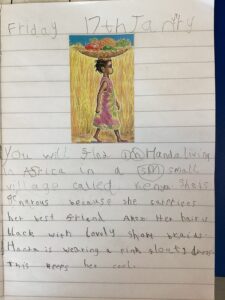 Friday 17th Janry
You will find Handa living
in Africa in a small
village called kenya she is
generous because she surprises
her best friend Akeyo Her hair is
black with lovely short braids
Handa is wearing a pink floaty dress.
This keeps her cool.